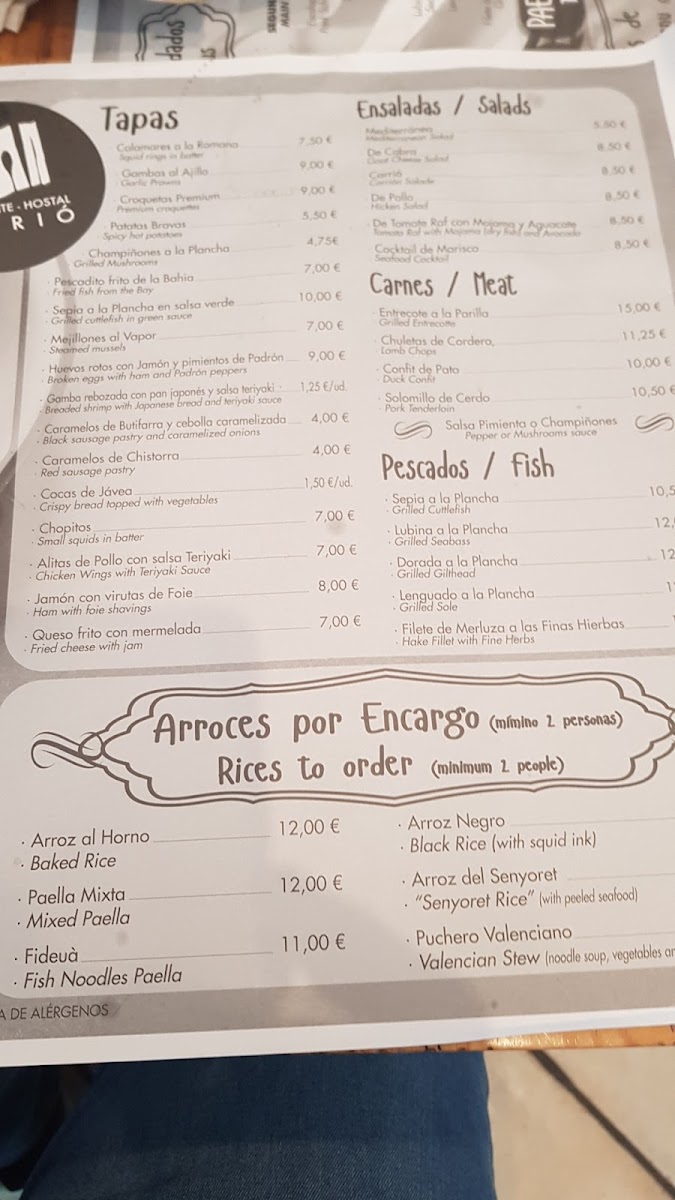 Tapas
Calamares a la Romana 7,50 €
Squid rings in batter
Gambas al Ajillo 9,00 €
Garlic Prawns
Croquetas Premium 9,00 €
Premium croquettes
· Patatas Bravas 5,50 €
Spicy hot potatoes
Champiñones a la Plancha 4,75€
Grilled Mushrooms
· Pescadito frito de la Bahia 7,00 €
· Fried fish from the Bay
· Sepia a la Plancha en salsa verde 10,00 €
· Grilled cuttlefish in green sauce
· Mejillones al Vapor 7,00 €
· Steamed mussels
· Huevos rotos con Jamón y pimientos de Padrón 9,00 €
· Broken eggs with ham and Padrón peppers
· Gamba rebozada con pan japonés y salsa teriyaki 1,25 €/ud.
· Breaded shrimp with Japanese bread and teriyaki sauce
· Caramelos de Butifarra y cebolla caramelizada 4,00 €
· Black sausage pastry and caramelized onions
· Caramelos de Chistorra 4,00 €
· Red sausage pastry
· Cocas de Jávea 1,50 €/ud.
· Crispy bread topped with vegetables
· Chopitos 7,00 €
· Small squids in batter
· Alitas de Pollo con salsa Teriyaki 7,00 €
· Chicken Wings with Teriyaki Sauce
· Jamón con virutas de Foie 8,00 €
· Ham with foie shavings
· Queso frito con mermelada 7,00 €
· Fried cheese with jam
Ensaladas / Salads
Mediterránea 5,50 €
Mediterranean Salad
De Cabra 8,50 €
Goat Cheese Salad
Carrió 8,50 €
De Pollo 8,50 €
Hicken Salad
· De Tomate Raf con Mojama y Aguacate 8,50 €
Tomato Raf with Mojama (dry fish) and Avocado
Cocktail de Marisco 8,50 €
Seafood Cocktail
Carnes / Meat
· Entrecote a la Parilla 15,00 €
Grilled Entrecotte
· Chuletas de Cordero, 11,25 €
Lamb Chops
· Confit de Pato 10,00 €
· Duck Confit
· Solomillo de Cerdo 10,50 €
· Pork Tenderloin
Salsa Pimienta o Champiñones
Pepper or Mushrooms sauce
Pescados / Fish
· Sepia a la Plancha 10,5
· Grilled Cuttlefish
· Lubina a la Plancha 12,
· Grilled Seabass
· Dorada a la Plancha 12
· Grilled Gilthead
· Lenguado a la Plancha
· Grilled Sole
· Filete de Merluza a las Finas Hierbas
· Hake Fillet with Fine Herbs
TE - HOSTAL
RIÓ
Arroces por Encargo (mímino 2 personas)
Rices to order (minimum 2 people)
· Arroz al Horno 12,00 €
· Baked Rice
· Paella Mixta 12,00 €
· Mixed Paella
· Fideuà 11,00 €
· Fish Noodles Paella
· Arroz Negro
· Black Rice (with squid ink)
· Arroz del Senyoret
· "Senyoret Rice" (with peeled seafood)
· Puchero Valenciano
· Valencian Stew (noodle soup, vegetables an
A DE ALÉRGENOS